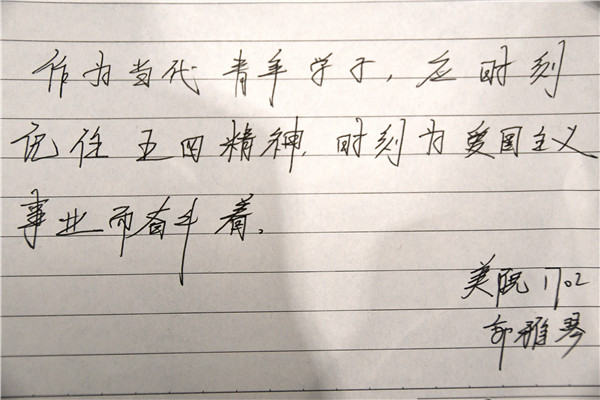 作为当代青年学子，应时刻
记住五四精神，时刻为爱国主义
事业而奋斗着。
美院1702
郭雅琴